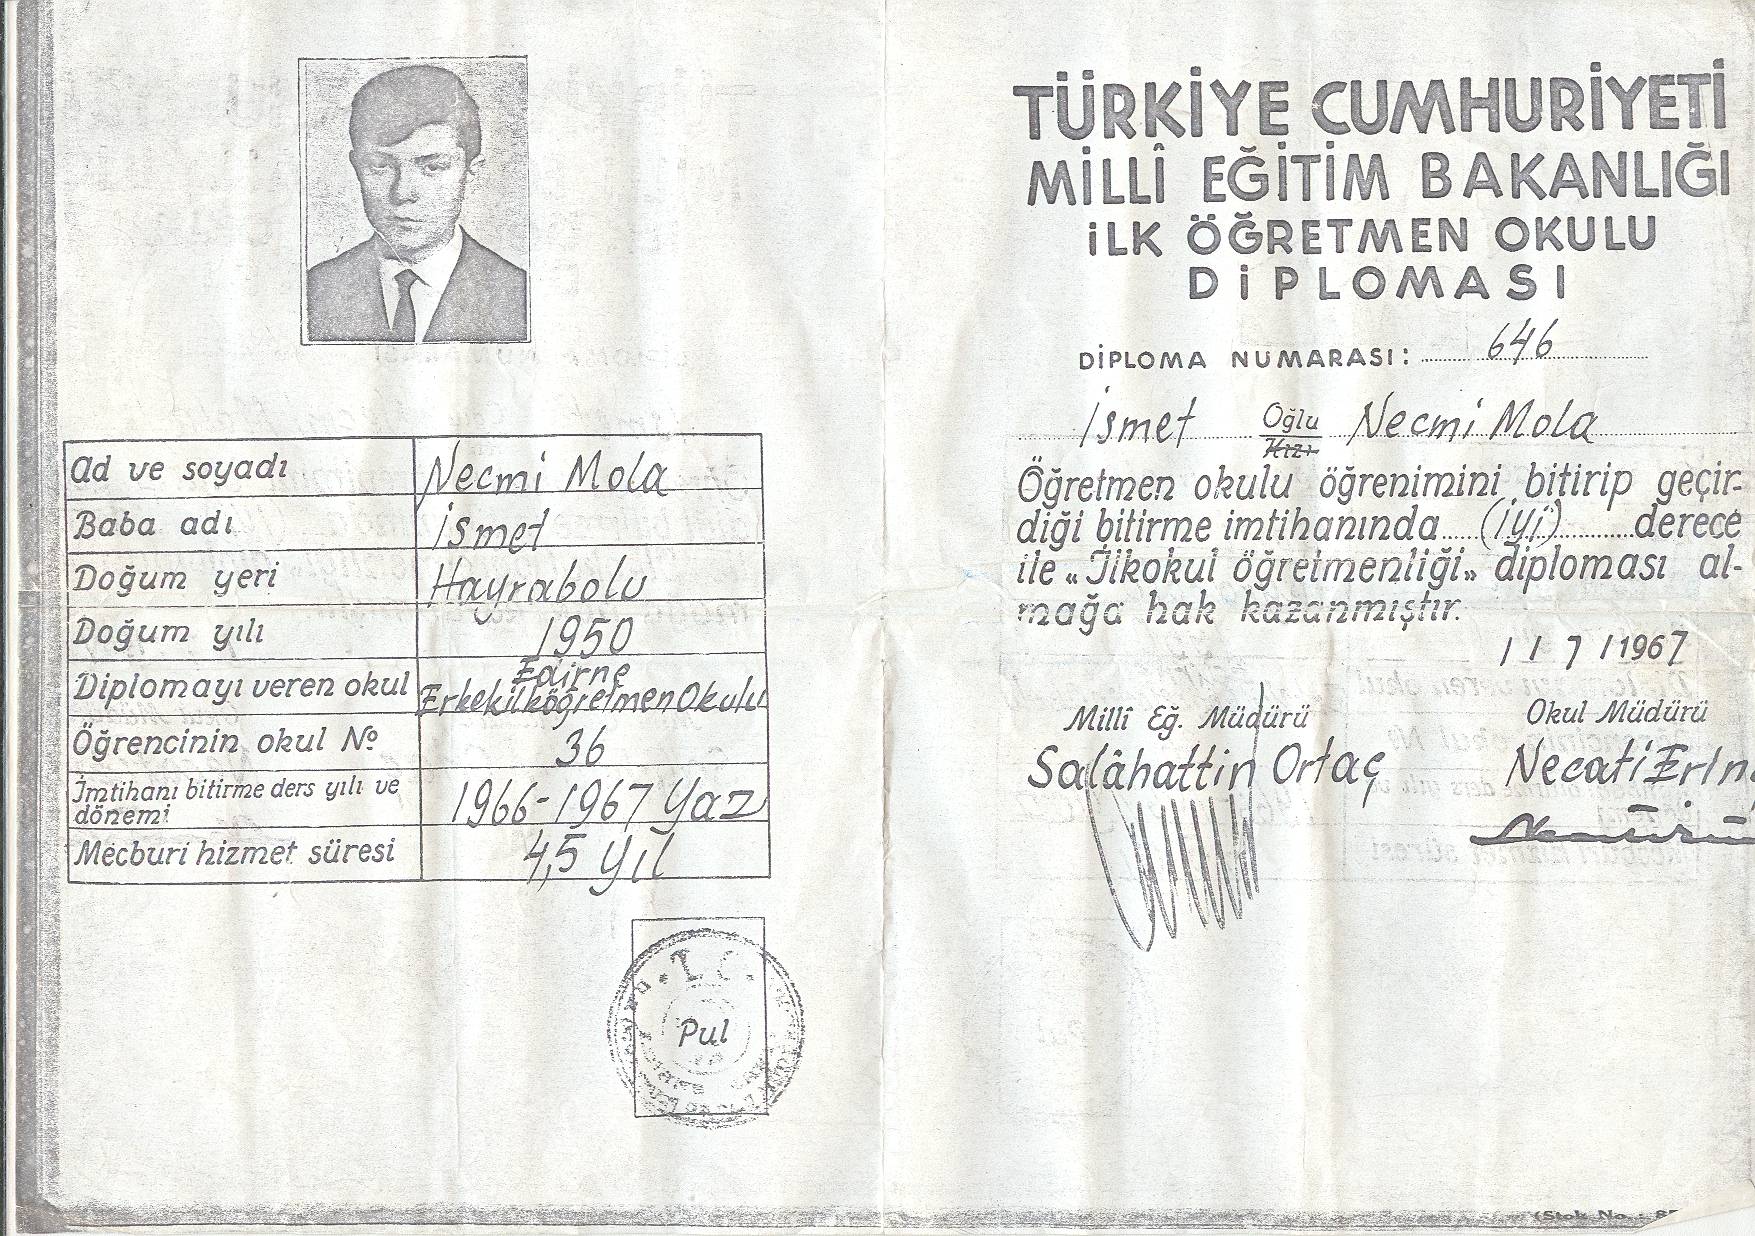 Ad ve soyadı Necmi Mola
Baba adı İsmet
Doğum yeri Hayrabolu
Doğum yılı 1950
Diplomayı veren okul Edirne
Erkek ilköğretmen Okulu
Öğrencinin okul No 36
İmtihanı bitirme ders yılı ve
dönemi 1966-1967 Yaz
Mecburi hizmet süresi 4,5 yıl
T.C.
Pul
TÜRKİYE CUMHURİYETİ
MİLLÎ EĞİTİM BAKANLIĞI
İLK ÖĞRETMEN OKULU
DİPLOMASI
DİPLOMA NUMARASI: 646
İsmet Oğlu Necmi Mola
Kızı
Öğretmen okulu öğrenimini bitirip geçir-
diği bitirme imtihanında (iyi) derece
ile «İlkokul öğretmenliği» diploması al-
mağa hak kazanmıştır.
1 / 7 / 1967
Millî Eğ. Müdürü
Salâhattin Ortaç
Okul Müdürü
Necati Erin
(Stok No. : 85